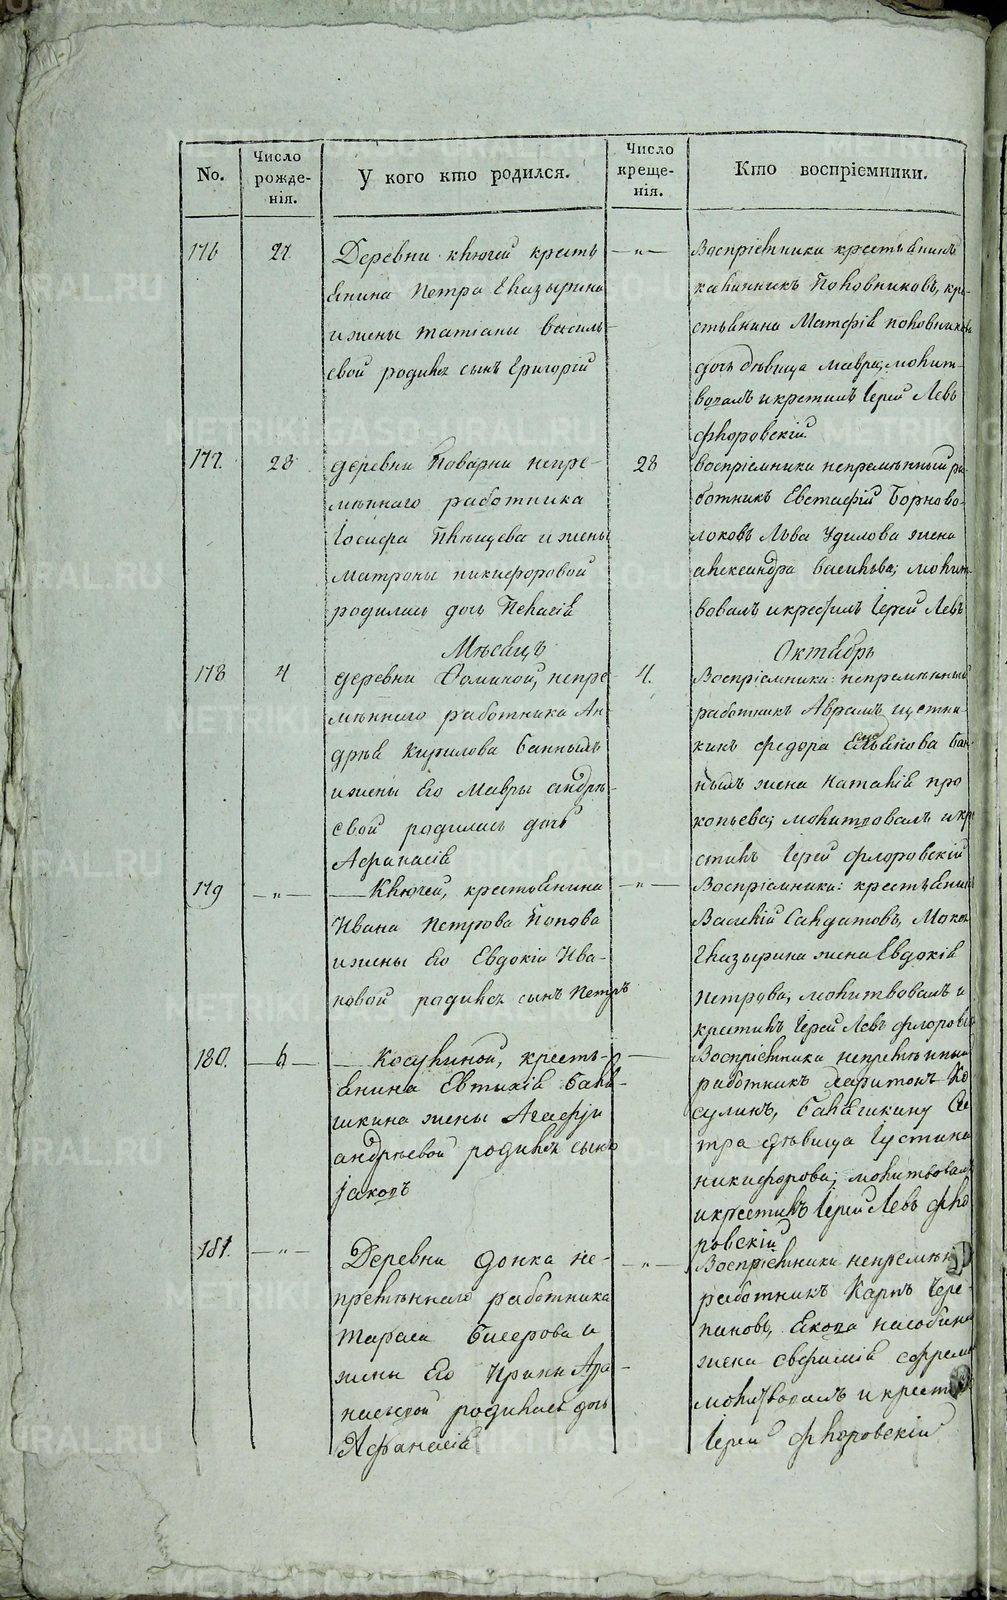 No.
Число рожде-нія.
У кого кто родился.
Число креще-нія.
Кто воспріемники.
176
27
Деревни Ключей крестьянина
Петра Глазырина
и жены Татіаны Василь-
евой родился сынъ Григорій
— „ —
Воспріемники крестьянинъ
Поповниковъ, кре-
стьянина Матфія
дочь дѣвица Мавра; молит-
вовалъ и крестилъ Іерей Левъ
Флоровскій
177.
28
деревни Поварни непре-
мѣннаго работника
Іосифа и жены
Матроны Никифоровой
родилась дочь Пелагія
28
Воспріемники непремѣнный ра-
ботникъ Евстафій Борново-
локовъ Льва Удилова жена
Александра Васильева; молит-
вовалъ и крестилъ Іерей Левъ
Мѣсяцъ
Октябрь
178
4
деревни Фоминой, непре-
мѣннаго работника Ан-
дрея Кирилова Банныхъ
и жены Его Мавры Андре-
евой родилась дочь
Афанасія
4.
Воспріемники: непремѣнный
работникъ Аврамъ
Федора Банныхъ жена Наталія Про
копьева; молитвовалъ и кре
стилъ Іерей Флоровскій
179
— „ —
— Ключей, крестьянина
Ивана Петрова Попова
и жены Его Евдокіи Ива-
новой родился сынъ Петръ
— „ —
Воспріемники: крестьянинъ
Василій
Глазырина жена Евдокія
Петрова; молитвовалъ и
крестилъ Іерей Левъ Флоровскій
180.
6
— Косулиной, кресть-
янина Евтихія Бала-
шкина жены Агафіи
Андреевой родился сынъ
Іаковъ
—
Воспріемники непремѣнный
работникъ Харитонъ Ко
сулинъ, Балашкину Се
стра дѣвица Іустина
Никифорова; молитвовалъ
и крестилъ Іерей Левъ Фло
ровскій
181.
— „ —
Деревни Донка не-
премѣннаго работника
Тараса Бисерова и
жены Его Ирины Афа-
насьевой родилась дочь
Афанасія
— „ —
Воспріемники непремѣн
работникъ Карпъ Чере-
пановъ,
жена
молитвовалъ и крестилъ
Іерей Флоровскій
METRIKI.GASO-URAL.RU